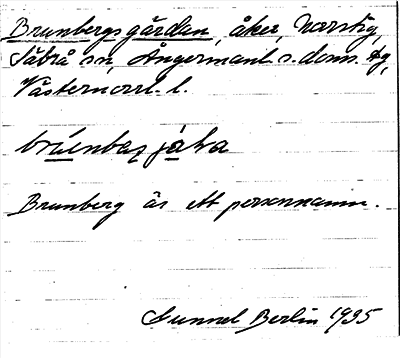 Brunbergsgården, åker, Norstig,
Säbrå sn, Ångermanl. s. doms.
Västernorrl. l.
Brunberg är ett personnamn.
Gunnel Berlin 1935